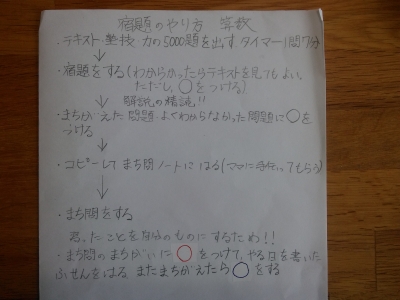 宿題のやり方 算数
・テキスト・塾技・力の5000題を出す タイマー1問7分
↓
・宿題をする(わからなかったらテキストを見てもよい。
ただし、○をつける)
↓ 解説の精読!!
・まちがえた問題、よくわからなかった問題に○を
つける
↓
・コピーして まち問ノートにはる(ママに手伝ってもらう)
↓
・まち問をする
ったことを自分のものにするため!!
・まち問のまちがいに○をつけて、やる日を書いた
ふせんをはる またまちがえたら○をする